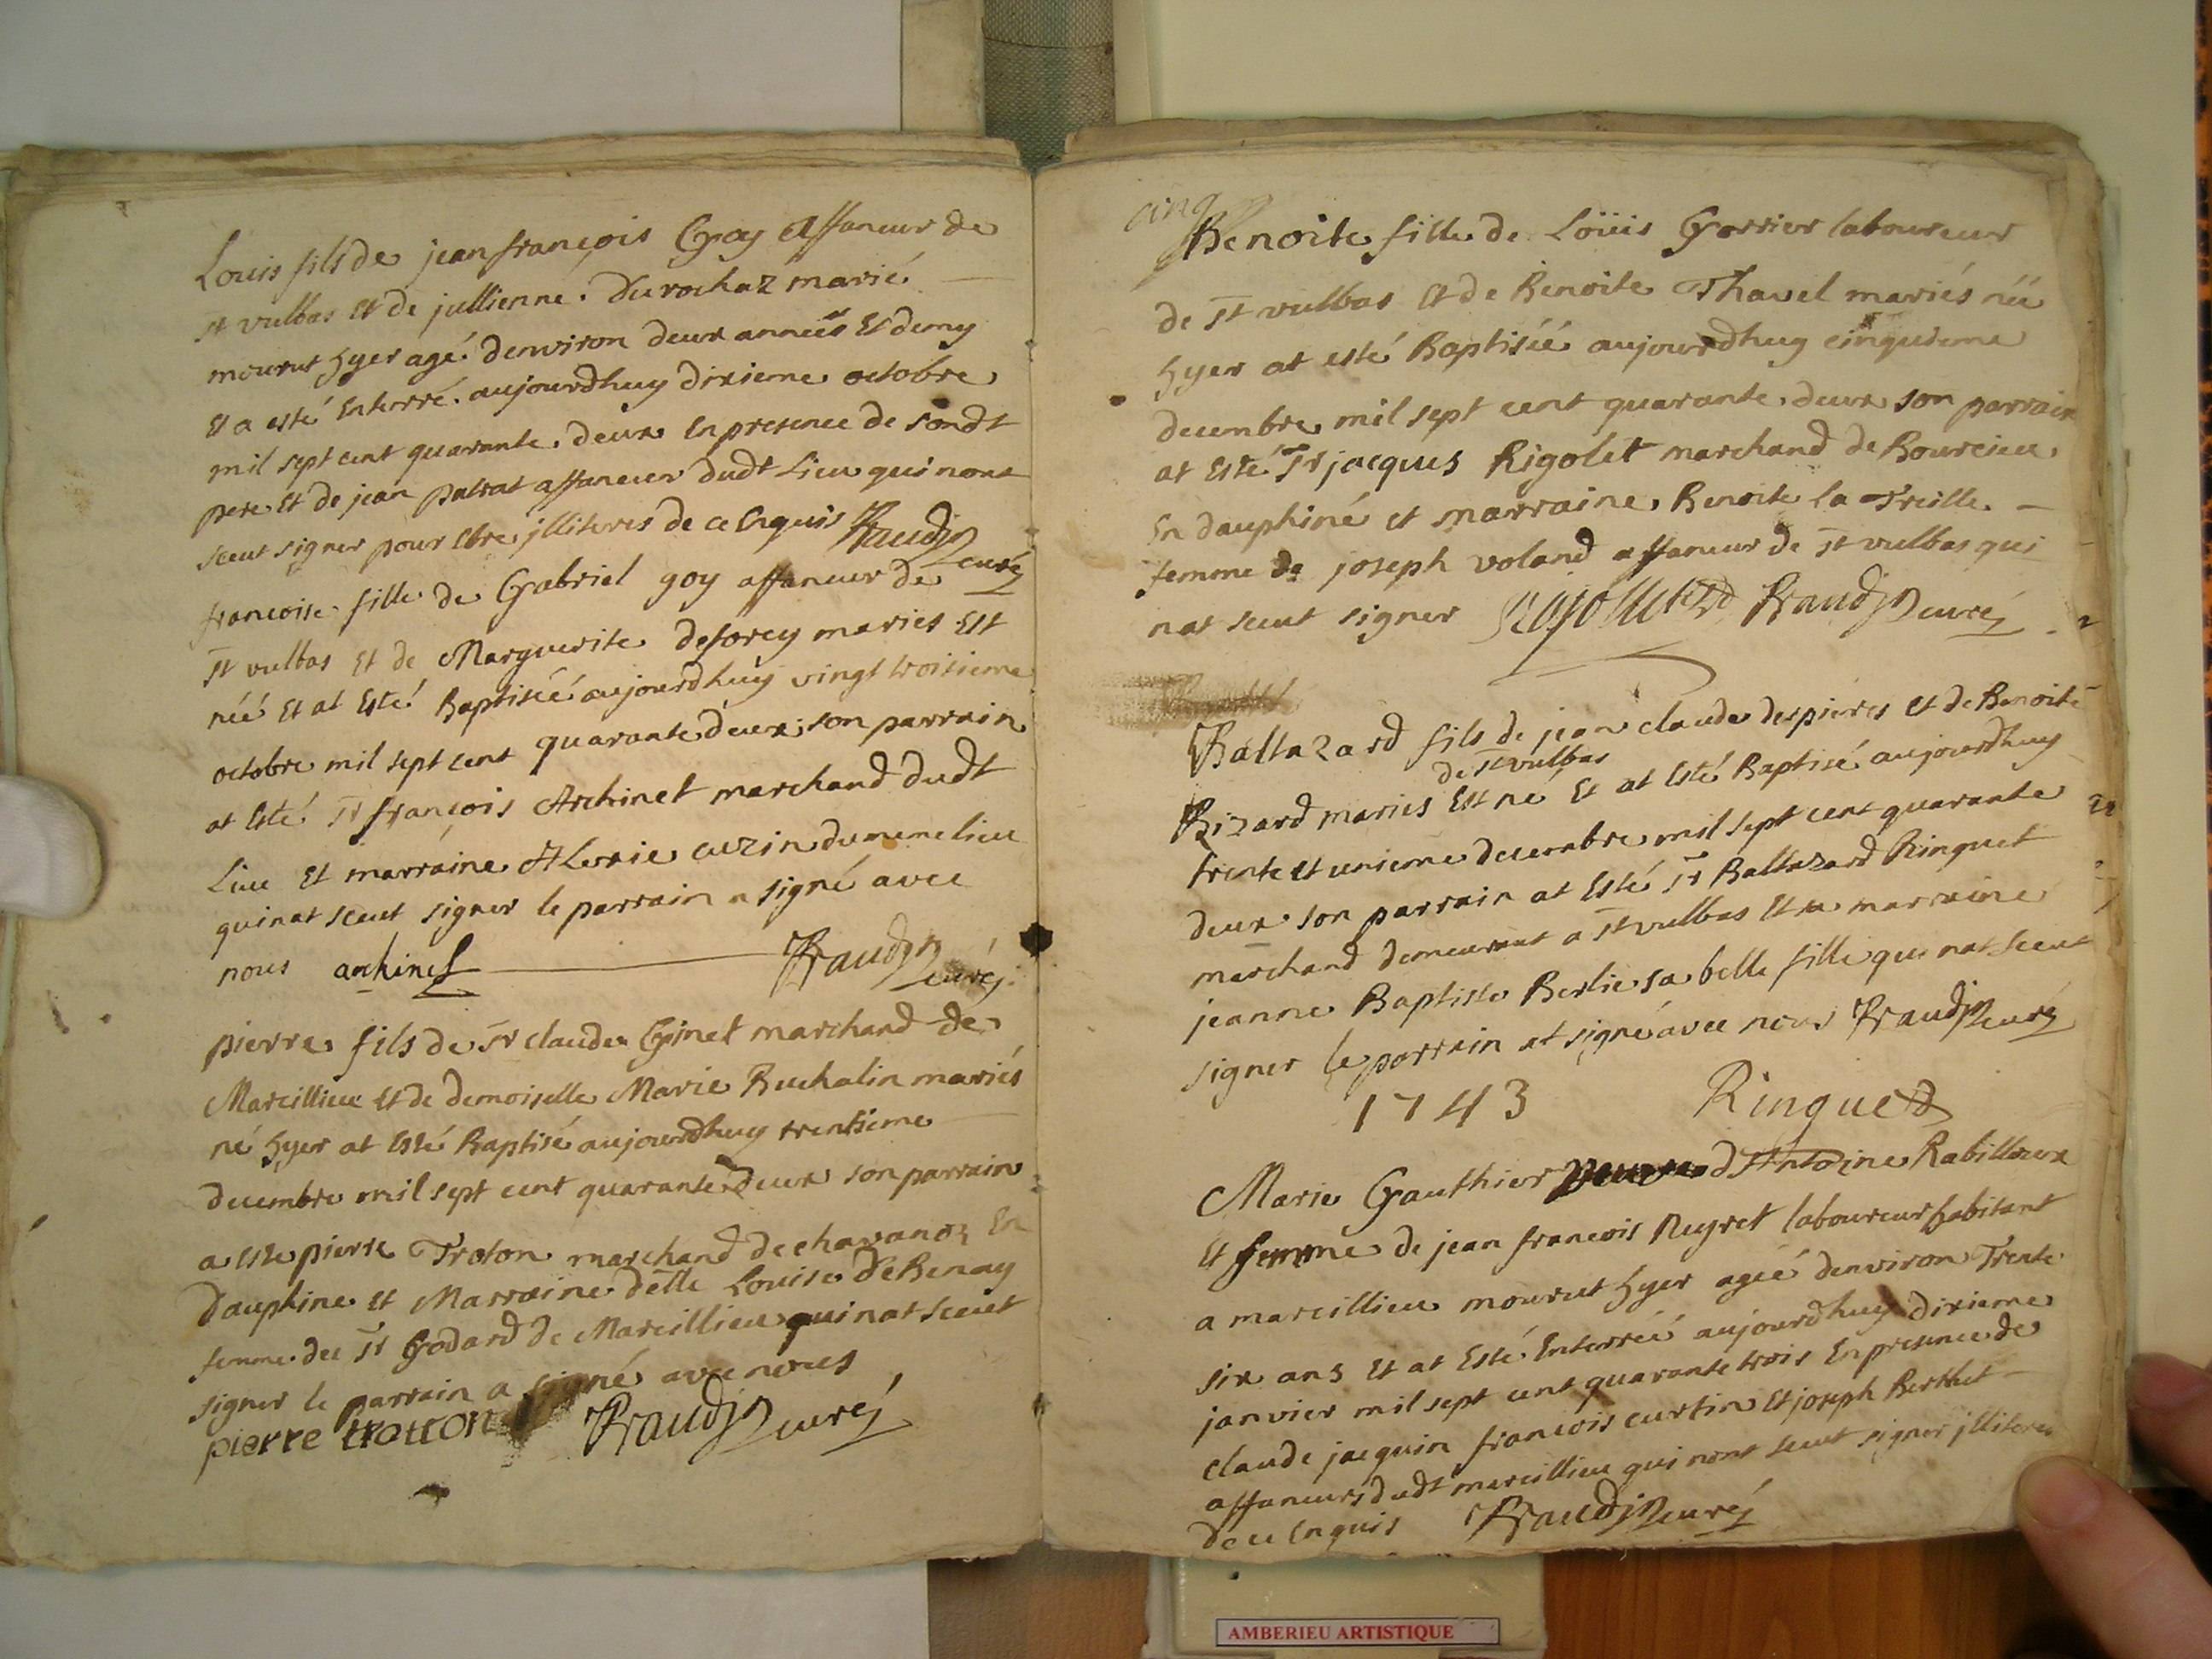 Louis fils de jean françois Goy affaneur de
st vulbas et de jullienne Durochaz marié
mourut hyer agé denviron deux annéés et demy
et a esté enterré aujourdhuy dixieme octobre
mil sept cent quarante deux en presence de sondt
pere et de jean patrat affaneur dudt Lieu qui nont
sceut signer pour etre jlliteres de ce enquis Baudin
curé
francoise fille de Gabriel goy affaneur de
st vulbas et de Marguerite desorey mariés est
néé et at esté Baptiséé aujourdhuy vingt troisieme
octobre mil sept cent quarante deux son parrain
at esté sr françois Archinet marchand dudt
Lieu et marraine cuzin du meme lieu
qui nat sceut signer le parrain a signé avec
nous archinet Baudin
curé
pierre fils de sr claude Ginet marchand de
Marcillieu et de demoiselle Marie Buchalin mariés
né hyer at esté Baptisé aujourdhuy trentieme
decembre mil sept cent quarante deux son parrain
a este pierre Troton marchand de chavanoz En
Dauphine et Marraine delle Louise DeBenay
femme du sr Godard de Marcillieu qui nat sceut
signer le parrain a signé avec nous
pierre trotton Baudin curé
cinq
Benoite fille de Loüis Gorrier laboureur
de st vulbas et de Benoite Thavel mariés néé
hyer at esté Baptiséé aujourdhuy cinquieme
decembre mil sept cent quarante deux son parrain
at esté sr jacques Rigolet marchand de Bourcieu
En dauphiné et marraine Benoite la Treille
femme de joseph voland affaneur de st vulbas qui
nat sceut signer Baudin curé
Baltazard fils de jean claude despieres et de Benoite
de st vulbas
Bizard mariés est né et at esté Baptisé aujourdhuy
trente et unieme decembre mil sept cent quarante
deux son parrain at esté sr Baltazard Ringuet
marchand demeurant a st vulbas et marraine
jeanne Baptiste Berlie sa belle fille qui nat sceut
signer le parrain at signé avec nous Baudin curé
1743 Ringuet
Marie Gauthier dAntoine Rabilloux
et femme de jean francois Neyret laboureur habitant
a marcillieu mourut hyer agéé denviron Trente
six ans et at esté Enterréé aujourdhuy dixieme
janvier mil sept cent quarante trois En presence de
claude jacquin francois curtin et joseph Berthet
affaneurs dudt marcillieu qui nont sceut signer jlliteres
de ce enquis Baudin curé
AMBERIEU ARTISTIQUE